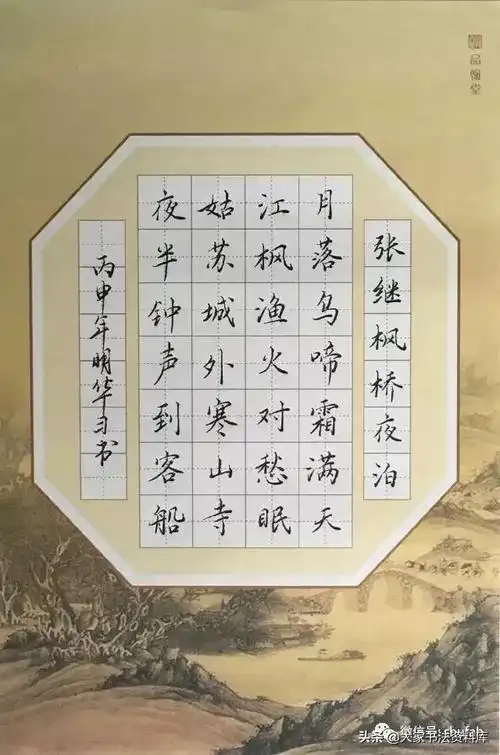 张继枫桥夜泊
月落乌啼霜满天
江枫渔火对愁眠
姑苏城外寒山寺
夜半钟声到客船
丙申年明华习书
品翰堂
微信号:
头条 @大家书法资料库